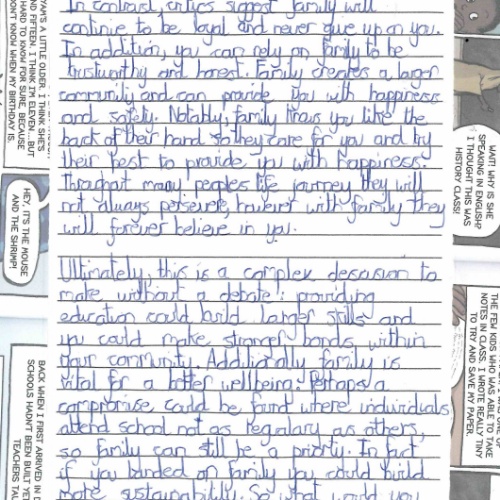 In contrast, critics suggest family will
continue to be loyal and never give up on you.
In addition, you can rely on family to be
trustworthy and honest. Family creates a larger
community and can provide you with happiness
and safety. Notably, family knows you like the
back of their hand so they care for you and try
their best to provide you with happiness.
Throughout many peoples life journey they will
not always persevere, however with family they
will forever believe in you.
Ultimately, this is a complex descusion to
make without a debate: providing
education could build larger skills and
you could make stronger bonds within
your community. Additionally family is
vital for a better wellbeing. Perhaps a
compromise could be found where individuals
attend school not as regulary as others,
so family can still be a priority. In fact
if you banded on family you could build
more sustainability. So what would you
YAM'S A LITTLE OLDER. I THINK SHE'S
AND FIFTEEN. I THINK I'M ELEVEN... BUT
HARD TO KNOW FOR SURE, BECAUSE
DON'T KNOW WHEN MY BIRTHDAY IS.
HEY, IT'S THE MOUSE
AND THE SHRIMP!
BACK WHEN I FIRST ARRIVED IN
SCHOOLS HADN'T BEEN BUILT YET
TEACHERS
WAIT! WHY IS SHE
SPEAKING IN ENGLISH?
I THOUGHT THIS WAS
HISTORY CLASS!
ONE OF
THE FEW KIDS WHO WAS ABLE TO TAKE
NOTES IN CLASS. I WROTE REALLY TINY
TO TRY AND SAVE MY PAPER.